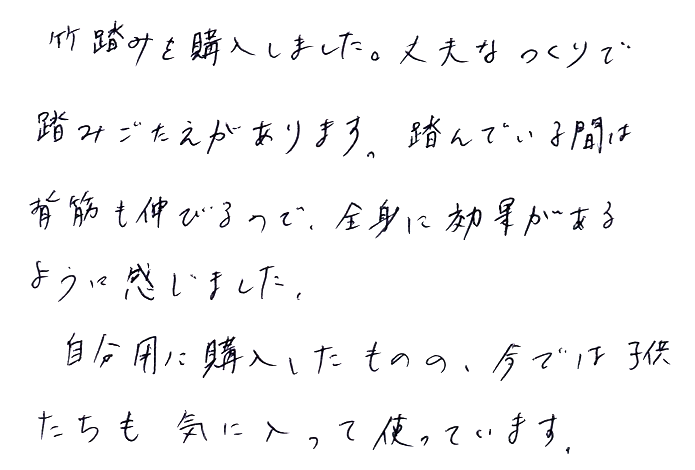 竹踏みを購入しました。丈夫なつくりで
踏みごたえがあります。踏んでいる間は
背筋も伸びるので、全身に効果がある
ように感じました。
自分用に購入したものの、今では子供
たちも気に入って使っています。